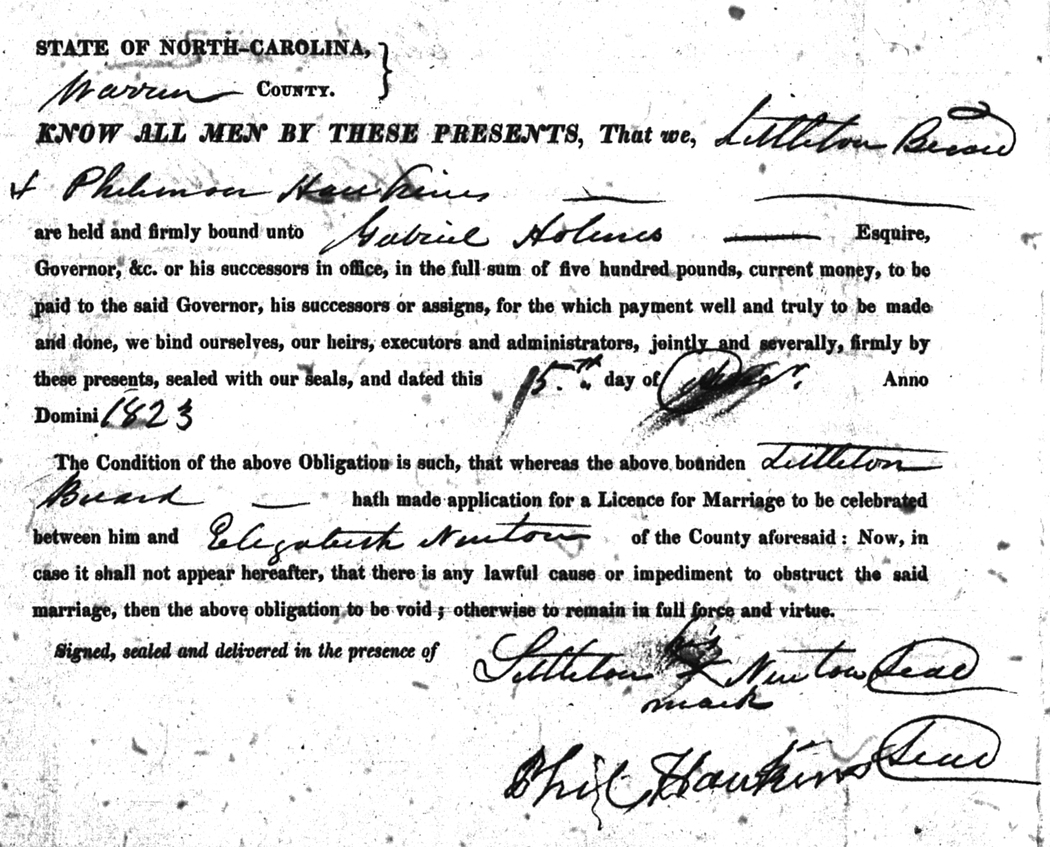 STATE OF NORTH-CAROLINA,
Warren COUNTY.
KNOW ALL MEN BY THESE PRESENTS, That we, Littleton
& Philemon Hawkins
are held and firmly bound unto Gabriel Holmes Esquire,
Governor, &c. or his successors in office, in the full sum of five hundred pounds, current money, to be
paid to the said Governor, his successors or assigns, for the which payment well and truly to be made
and done, we bind ourselves, our heirs, executors and administrators, jointly and severally, firmly by
these presents, sealed with our seals, and dated this 15.th day of Anno
Domini 1823
The Condition of the above Obligation is such, that whereas the above bounden Littleton
hath made application for a Licence for Marriage to be celebrated
between him and Elizabeth Newton of the County aforesaid : Now, in
case it shall not appear hereafter, that there is any lawful cause or impediment to obstruct the said
marriage, then the above obligation to be void ; otherwise to remain in full force and virtue.
Signed, sealed and delivered in the presence of
his
Littleton X Newton Seal
mark
Phil Hawkins Seal